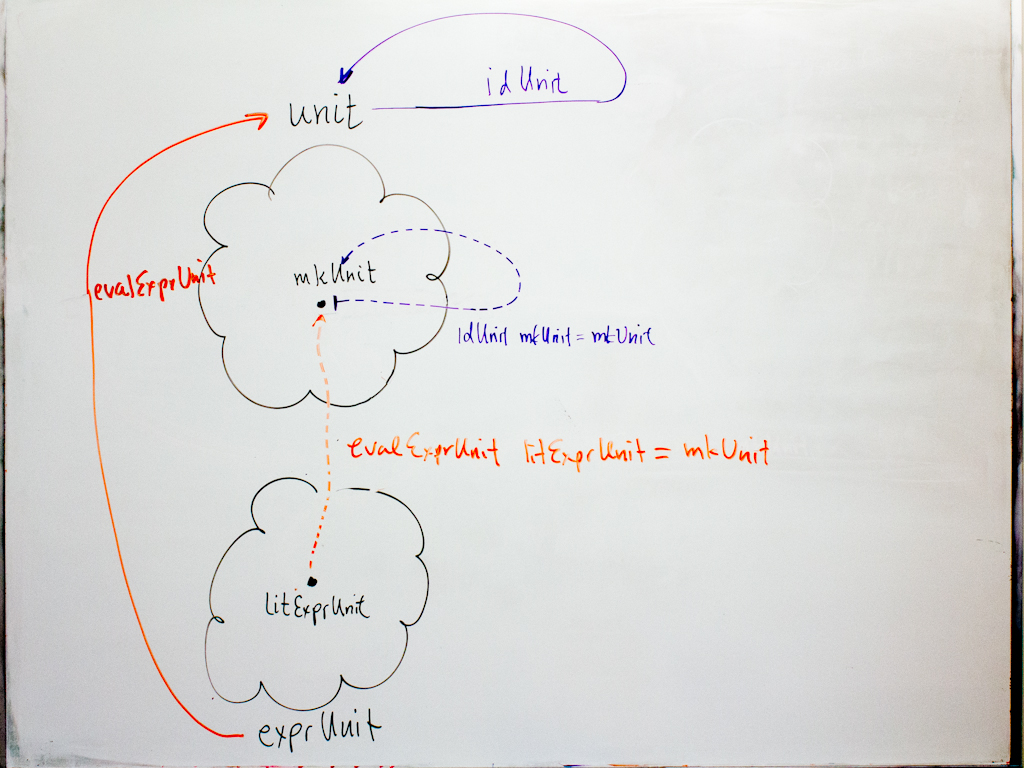 idUnit
unit
mkUnit
evalExprUnit
idUnit mkUnit = mkUnit
evalExprUnit litExprUnit = mkUnit
litExprUnit
exprUnit